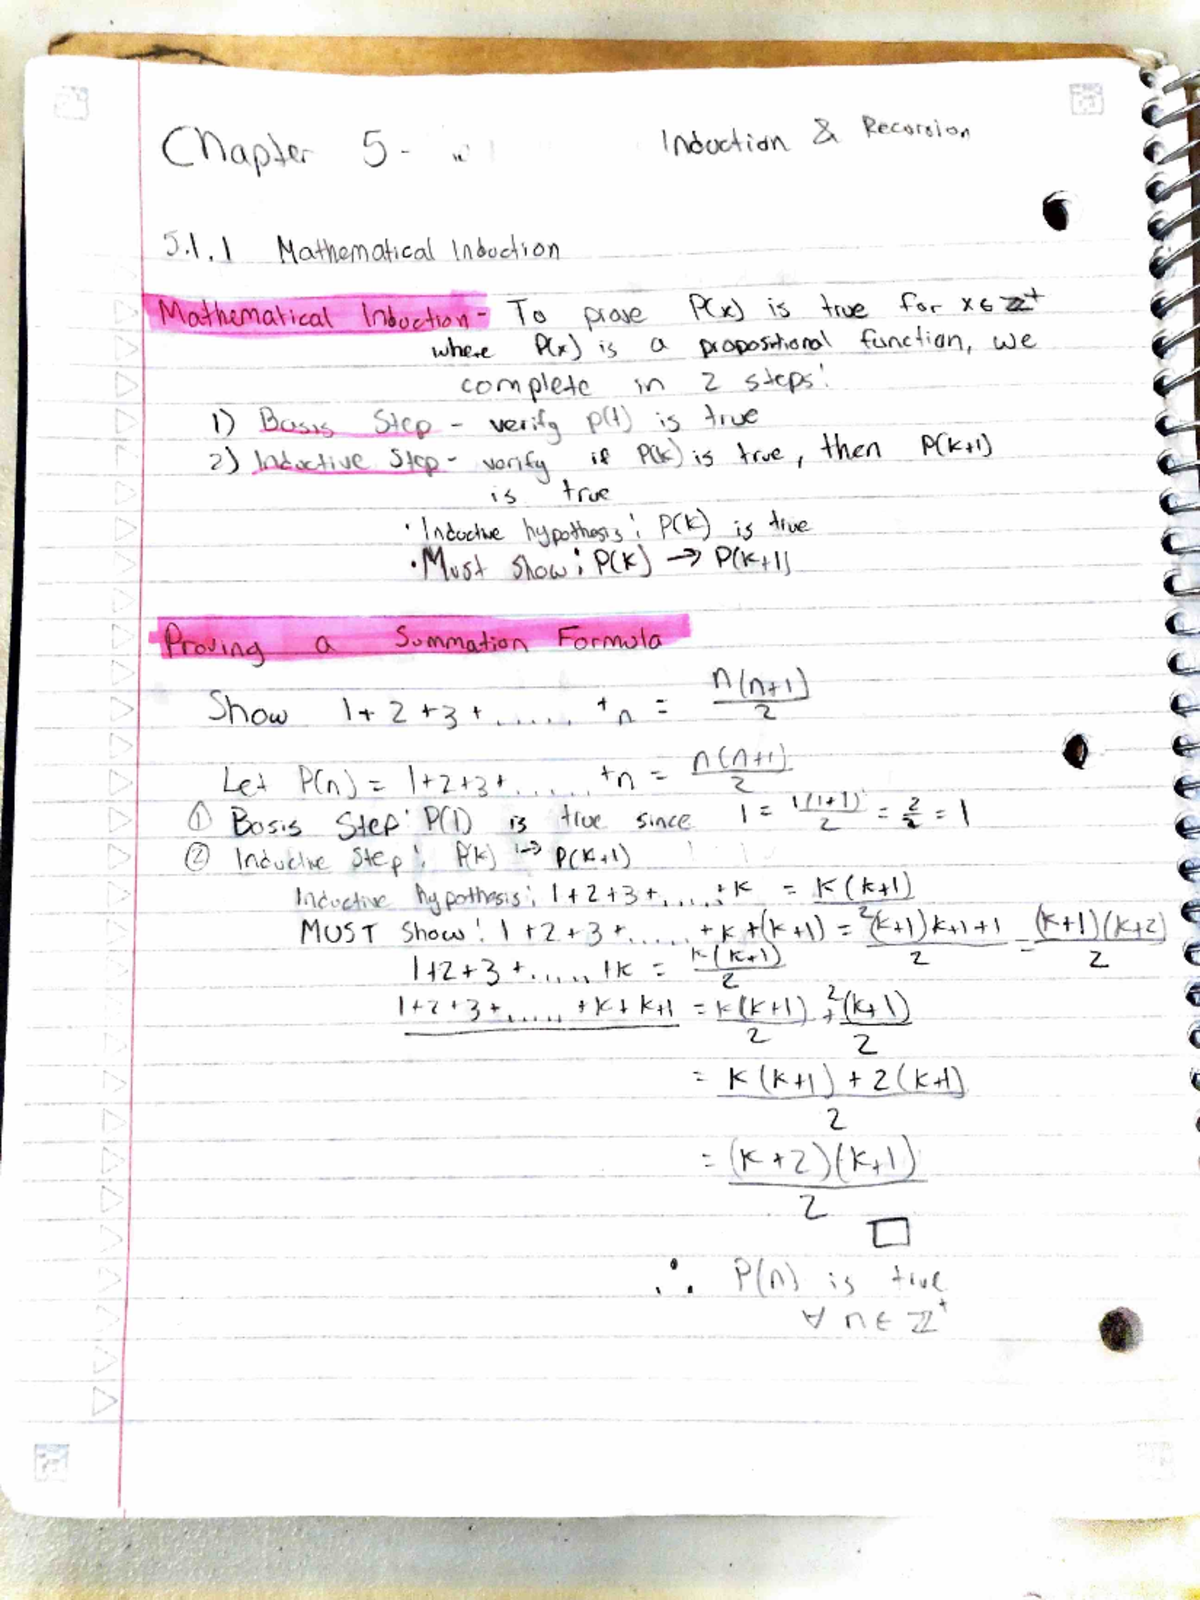 Chapter 5 - Induction & Recursion
5.1.1 Mathematical Induction
Mathematical Induction - To prove P(x) is true for x ∈ ℤ⁺
where P(x) is a propositional function, we
complete in 2 steps:
1) Basis Step - verify P(1) is true
2) Inductive Step - verify if P(k) is true, then P(k+1)
is true
· Inductive hypothesis: P(k) is true
· Must Show: P(k) → P(k+1)
Proving a Summation Formula
Show 1+2+3+......+n = n(n+1)/2
Let P(n) = 1+2+3+......+n = n(n+1)/2
① Basis Step: P(1) is true since 1 = 1(1+1)/2 = 2/2 = 1
② Inductive Step: P(k) → P(k+1)
Inductive hypothesis: 1+2+3+.....+k = k(k+1)
MUST Show: 1+2+3+......+k+(k+1) = (k+1)k+1+1/2 = (k+1)(k+2)/2
1+2+3+......+k = k(k+1)/2
1+2+3+......+k+k+1 = k(k+1)/2 + 2(k+1)/2
= k(k+1)+2(k+1)/2
= (k+2)(k+1)/2
□
∴ P(n) is true
∀ n ∈ ℤ⁺